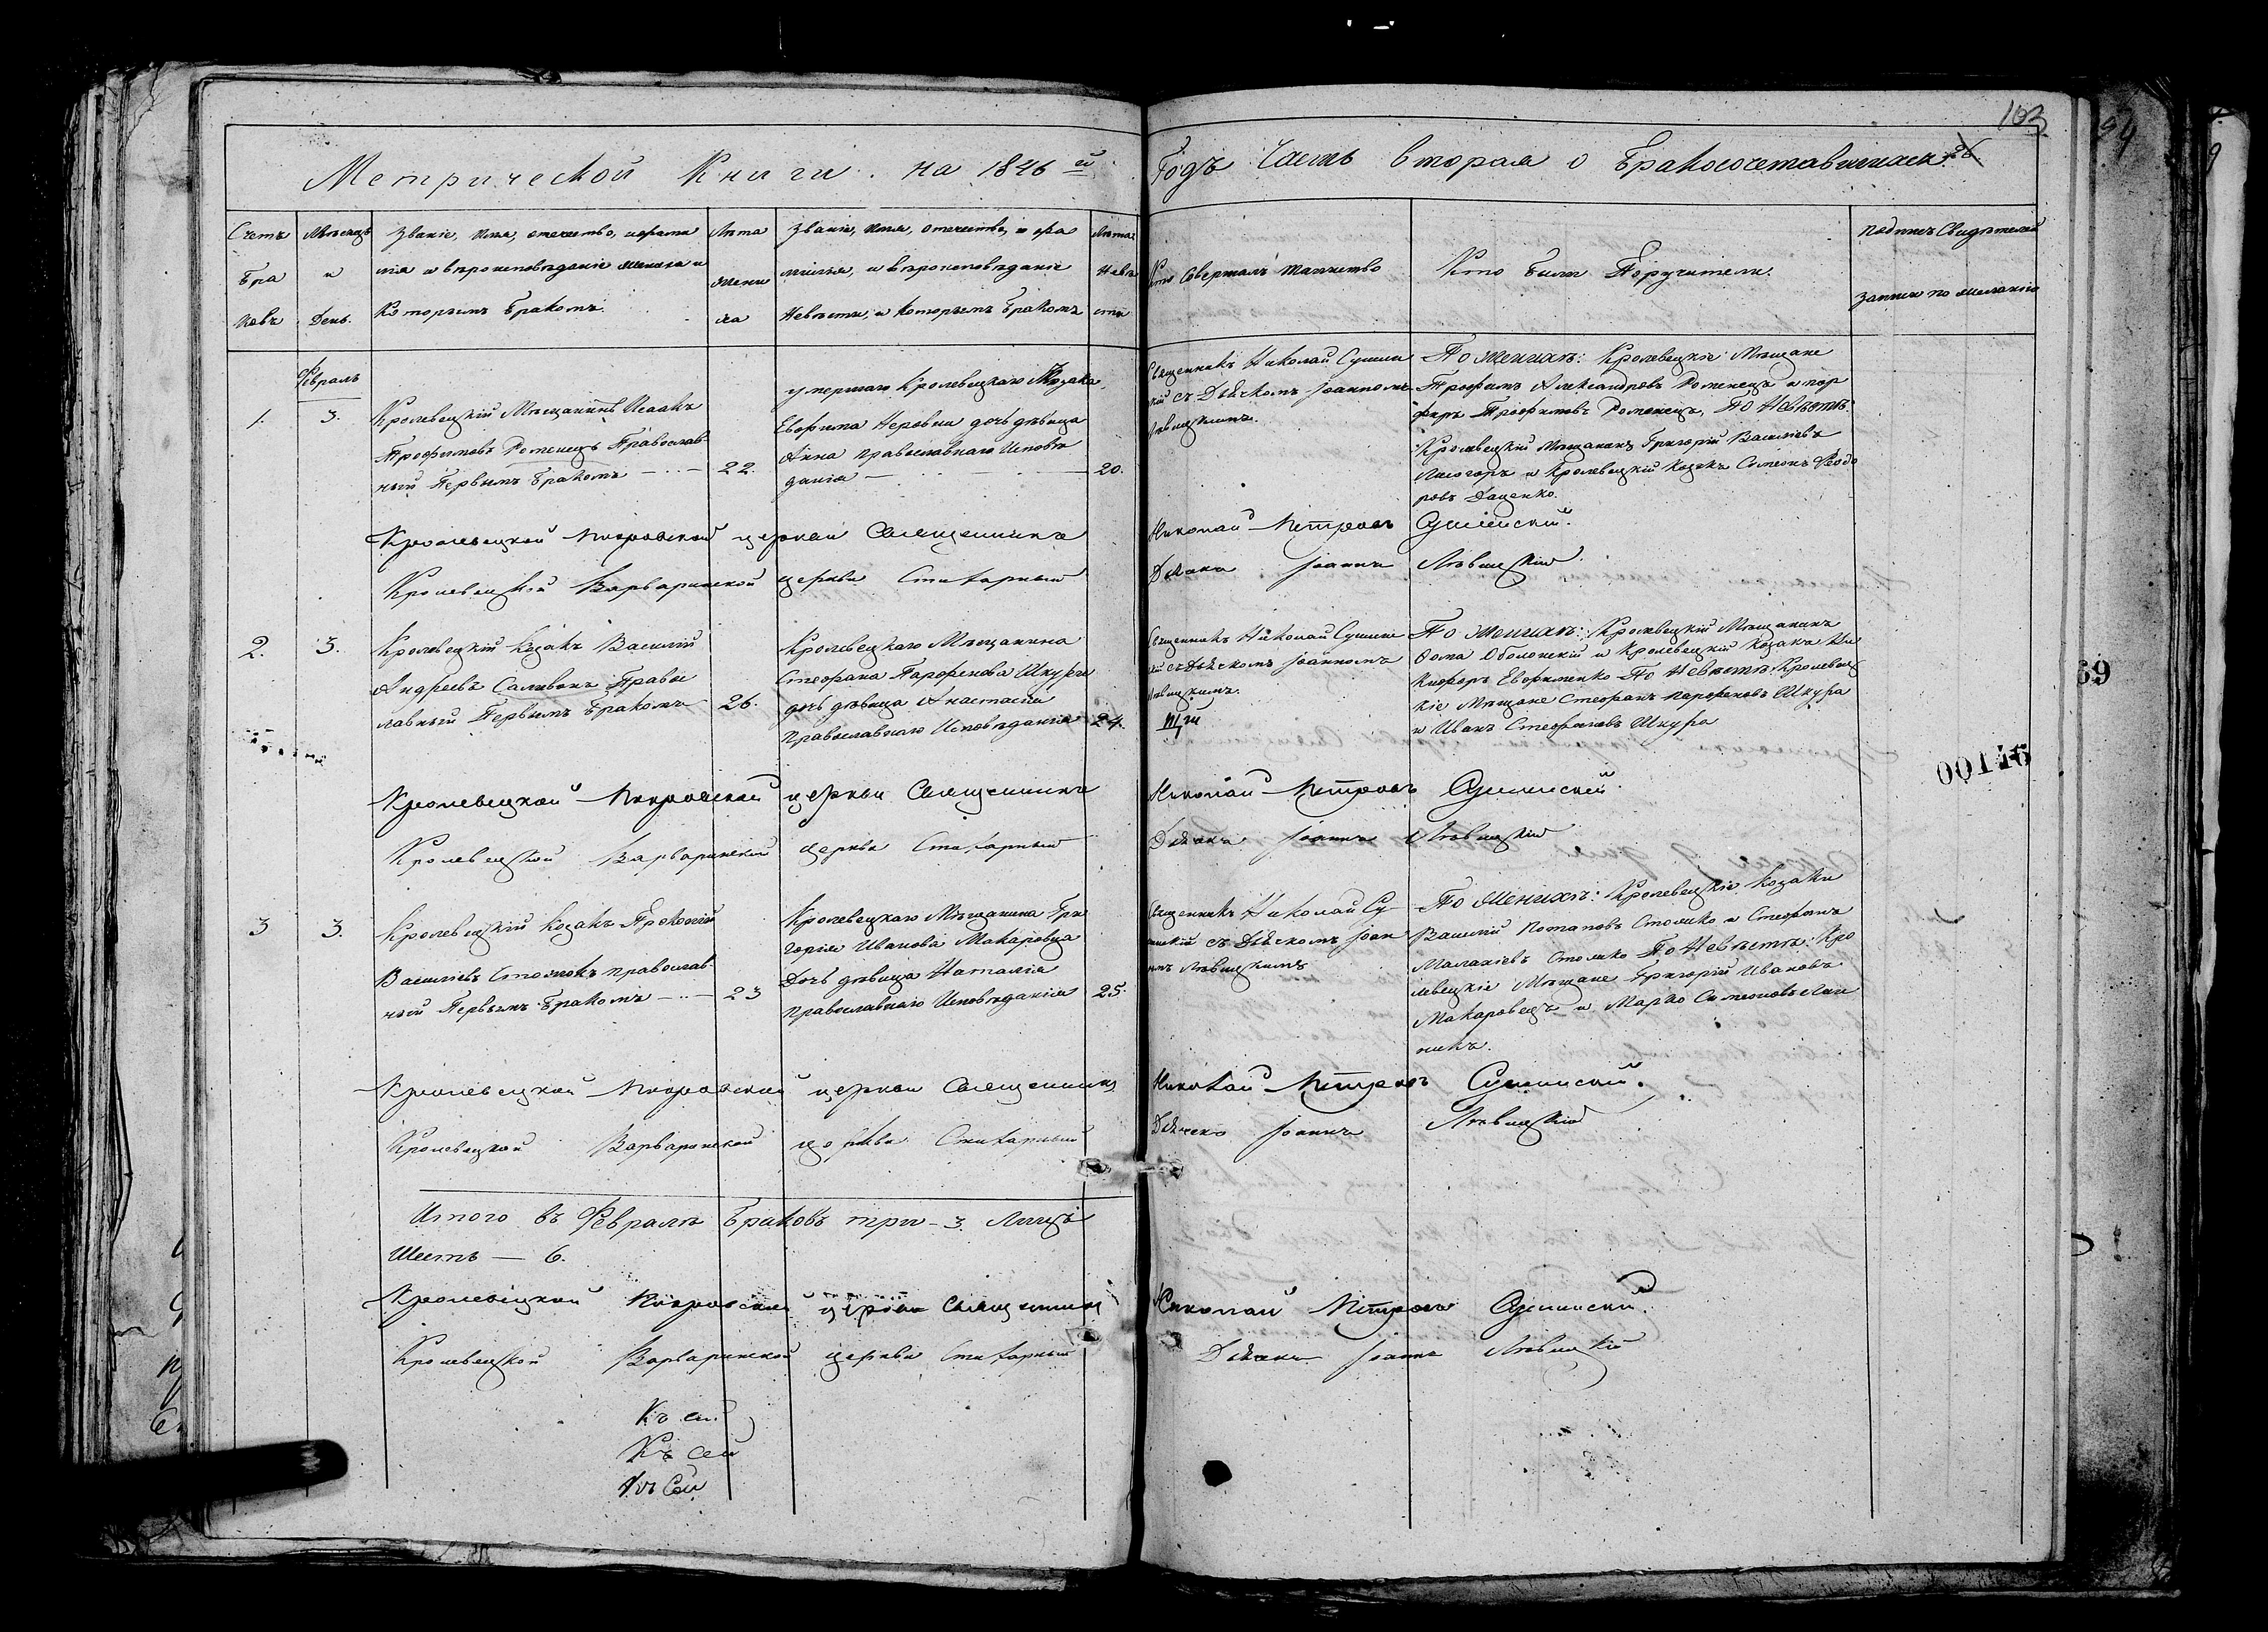 103
Метрической Книги на 1846й Годъ Часть вторая о Бракосочетавшихся
Счетъ Браковъ
Мѣсяцъ и День.
Званіе, имя, отечество, и фами
лія и вѣроисповѣданіе жениха и
Которымъ Бракомъ.
Лѣта Жени ха
Званіе, имя, отечество, и фа
милія, и вѣроисповѣданіе
Невѣсты, и Которымъ Бракомъ
Лѣта Невѣ сты
Кто Совершалъ таинство
Кто были Поручители.
подпись Свидѣтелей
записи по желанію
Февраль
1.
3.
Кролевецкій Мѣщанинъ Исаакъ
Трофимовъ Роменецъ Православ
ный Первымъ Бракомъ
22.
умершаго Кролевецкаго Козака
Евфима Неровни дочь дѣвица
Анна православнаго Исповѣ
данія
20.
Священникъ Николай Сушин
кій съ Дьячкомъ Іоанномъ
Лѣвицкимъ.
По Женихѣ: Кролевецкіе Мѣщане
Трофимъ Александровъ Роменецъ и пор
фирь Трофимовъ Роменецъ, По Невѣстѣ:
Кролевецкій Мѣщанинъ Григорій Василіевъ
Лисогоръ и Кролевецкій Козакъ Симеонъ Федо
ровъ Даценко.
Кролевецкой Покровской церкви Священникъ Николай Петровъ Сушинскій.
Кролевецкой Варваринской церкви Стихарный Дьячокъ Іоаннъ Лѣвицкій
2.
3.
Кролевецкій Козакъ Василій
Андреевъ Саливонъ Правос
лавный Первымъ Бракомъ
26.
Кролевецкаго Мѣщанина
Стефана Парфенова Шкуры
дочь дѣвица Анастасія
Православнаго Исповѣданія
24.
Священникъ Николай Сушинс
кій съ Дьячкомъ Іоанномъ
Лѣвицкимъ.
По Женихѣ: Кролевецкій Мѣщанинъ
Фома Оболонскій и Кролевецкій Козакъ Ни
кифоръ Евфименко По Невѣстѣ: Кролевец
кіе Мѣщане Стефанъ Парфеновъ Шкура
и Иванъ Стефановъ Шкура
00146
69
Кролевецкой Покровской церкви Священникъ Николай Петровъ Сушинскій.
Кролевецкой Варваринской церкви Стихарный Дьячокъ Іоаннъ Лѣвицкій
3
3.
Кролевецкій Козакъ Прокопій
Василіевъ Столокъ православ
ный Первымъ Бракомъ
23
Кролевецкаго Мѣщанина Гри
горія Иванова Макаровца
Дочь дѣвица Наталія
православнаго Исповѣданія
25.
Священникъ Николай Су
шинскій съ Дьячкомъ Іоан
номъ Лѣвицкимъ
По Женихѣ: Кролевецкіе Козаки
Василій Потаповъ Столико и Стефанъ
Малахіевъ Столико По Невѣстѣ: Кро
левецкіе Мѣщане Григорій Ивановъ
Макаровецъ и Марко Симеоновъ
Кролевецкой Покровской церкви Священникъ Николай Петровъ Сушинскій.
Кролевецкой Варваринской церкви Стихарный Дьячокъ Іоаннъ Лѣвицкій
Итого въ Февралѣ Браковъ три - 3. Лицъ
Шесть — 6.
Кролевецкой Покровской церкви Священникъ Николай Петровъ Сушинскій.
Кролевецкой Варваринской церкви Стихарный Дьячокъ Іоаннъ Лѣвицкій
Къ сей
Къ сей
Къ Сей